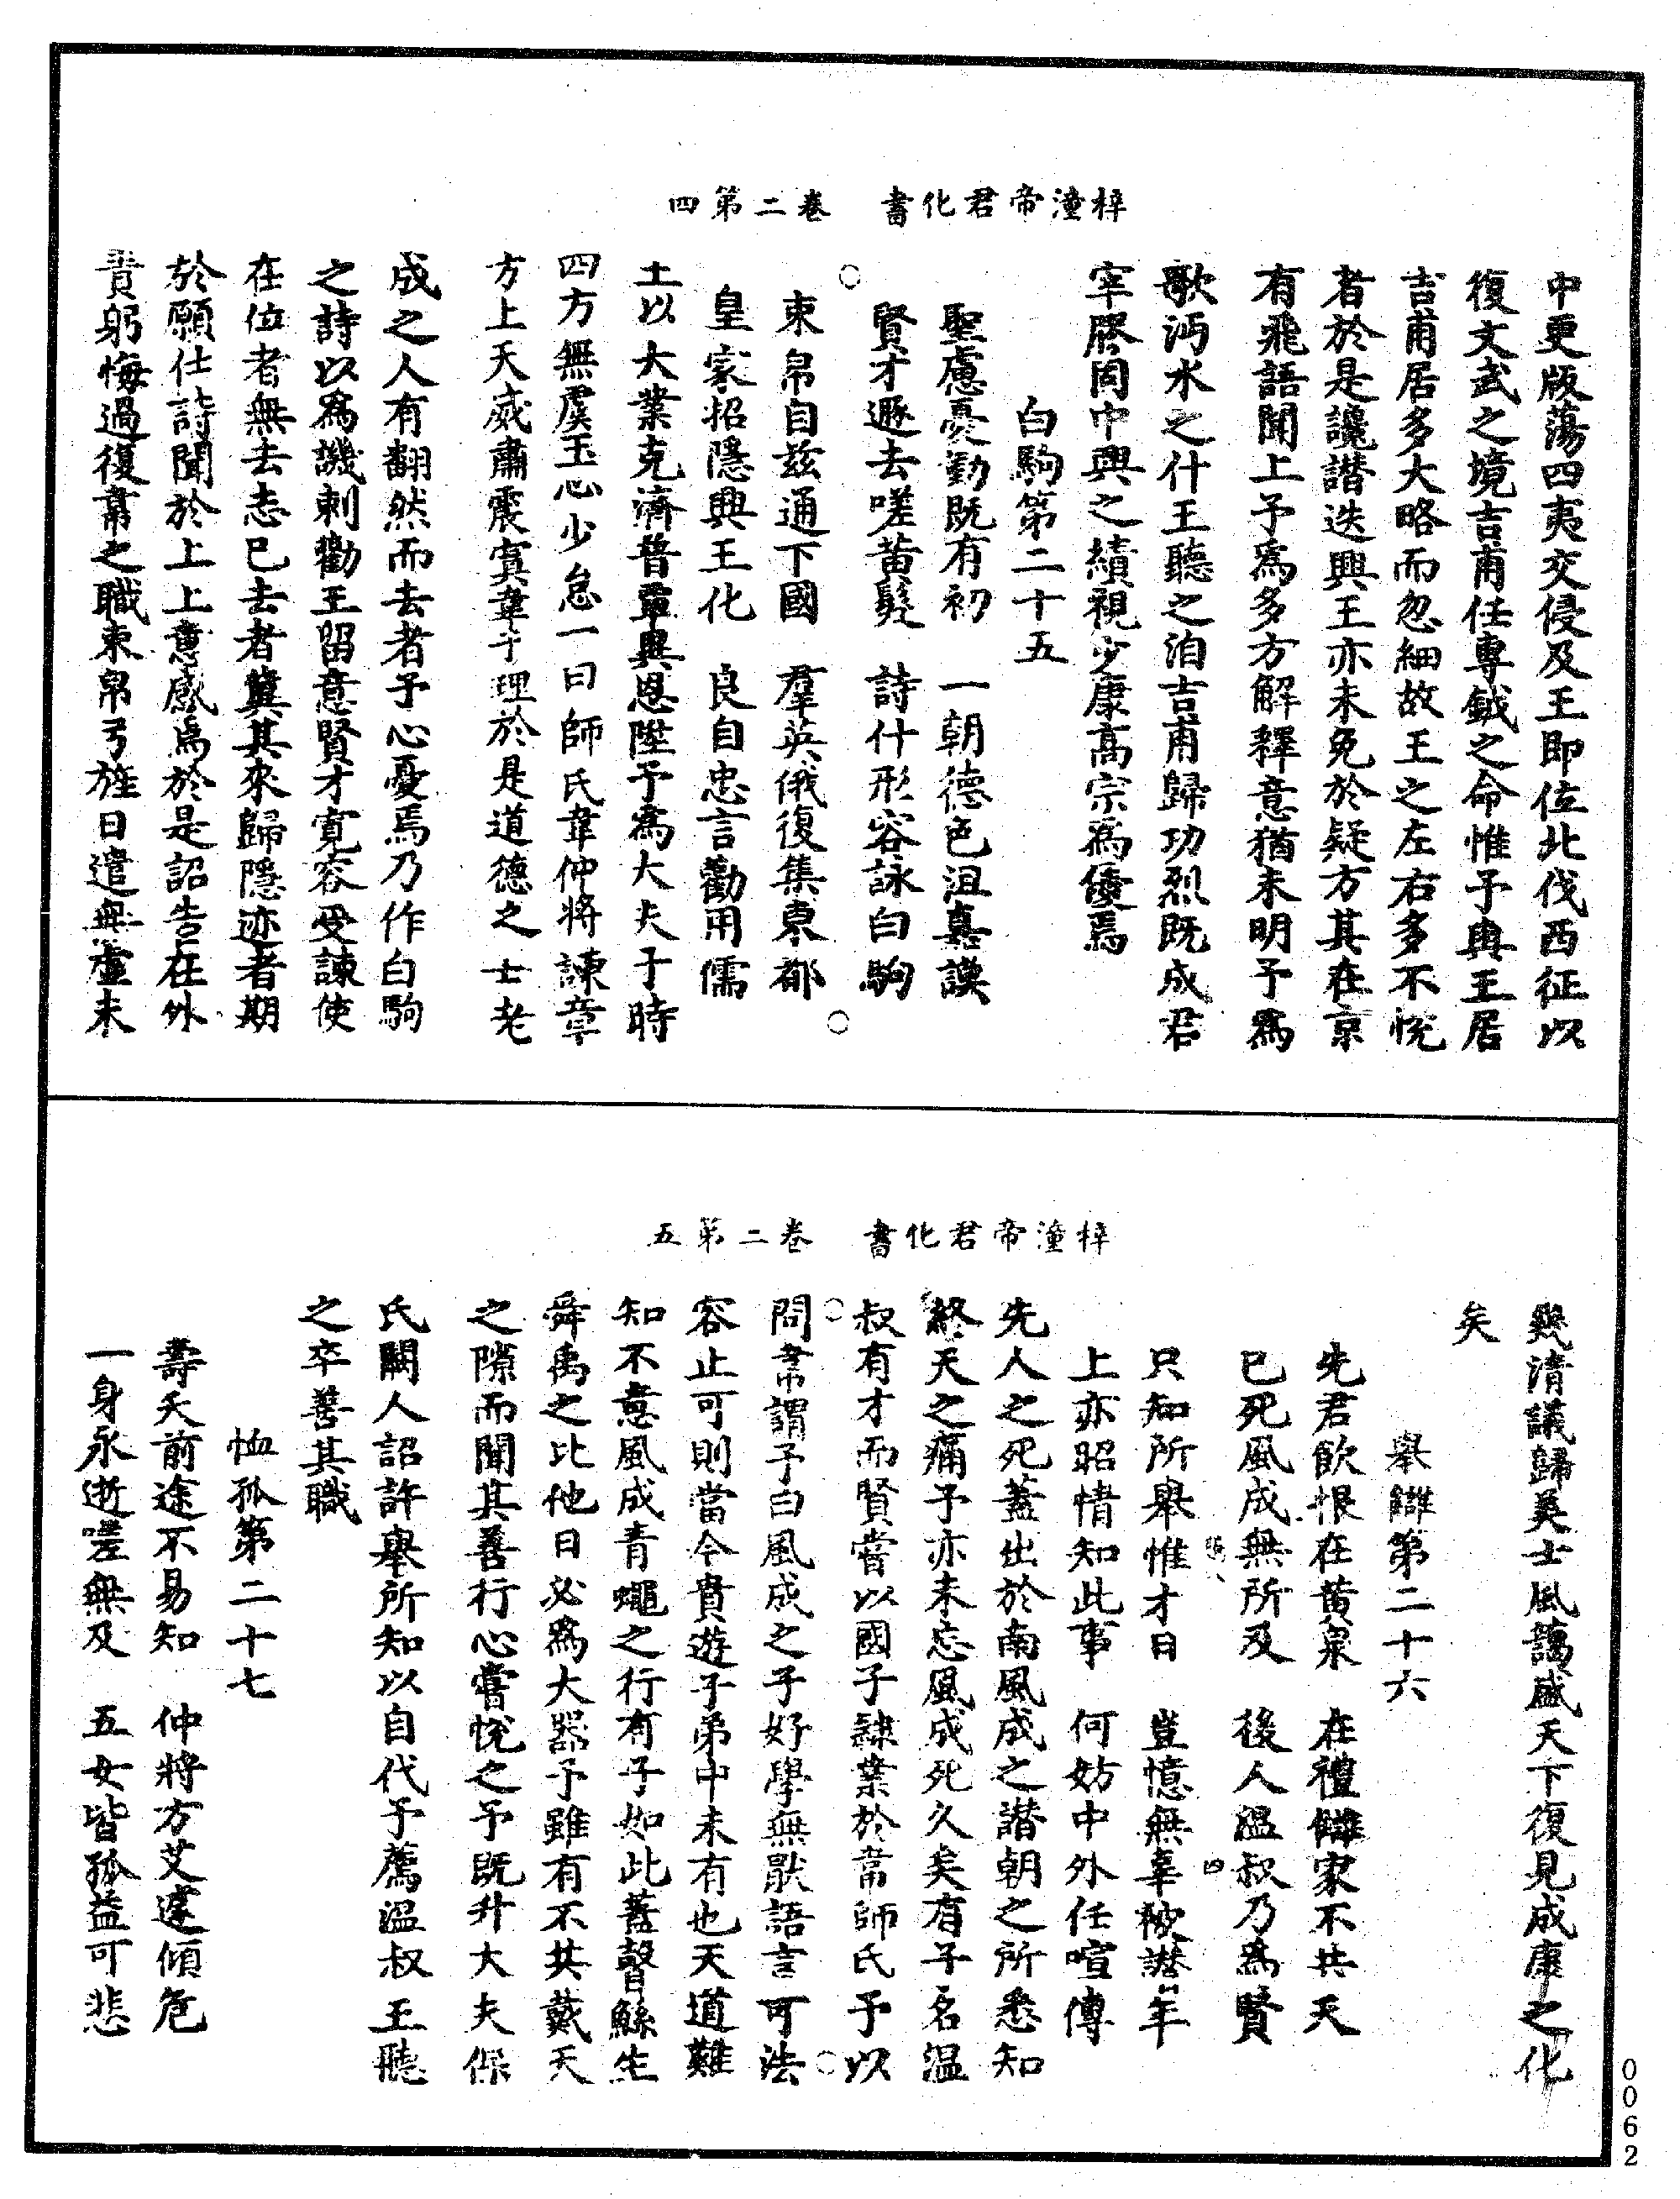 梓潼帝君化書　卷二第四
中更版蕩四夷交侵及王即位北伐西征以
復文武之境吉甫任專鉞之命惟予與王居
吉甫居多大略而忽細故王之左右多不悅
者於是讒譖迭興王亦未免於疑方其在京
有飛語聞上予為多方解釋意猶未明予為
歌沔水之什王聽之洎吉甫歸功烈既成君
宰膠固中興之績視少康高宗為優焉
白駒第二十五
聖慮憂勤既有初　一朝德色沮嘉謨
賢才遯去嗟黃髮　詩什形容詠白駒
束帛自茲通下國　羣英俄復集東都
皇家招隱興王化　良自忠言勸用儒
土以大業克濟普覃異恩陞予為大夫于時
四方無虞玉心少怠一曰師氏韋仲將諫章
方上天威肅震寘韋于理於是道德之士老
成之人有翻然而去者予心憂焉乃作白駒
之詩以為譏刺勸王留意賢才寬容受諫使
在位者無去志已去者冀其來歸隱迹者期
於願仕詩聞於上上意感焉於是詔告在外
責躬悔過復韋之職束帛弓旌日遣無虛未
梓潼帝君化書　卷二第五
幾清議歸美士風藹盛天下復見成康之化
矣
舉讎第二十六
先君飲恨在黃泉　在禮讎家不共天
已死風成無所及　後人溫叔乃為賢
只知所舉惟才日　豈憶無辜被譖年
上亦昭情知此事　何妨中外任喧傳
先人之死蓋出於南風成之譖朝之所悉知
終天之痛予亦未忘風成死久矣有子名溫
叔有才而賢嘗以國子隸業於韋師氏予以
問韋謂予曰風成之子好學無厭語言可法
容止可則當今貴遊子弟中未有也天道難
知不意風成青蠅之行有子如此蓋瞽鯀生
舜禹之比他日必為大器予雖有不共戴天
之隙而聞其善行心嘗悅之予既升大夫保
氏闕人詔許舉所知以自代予薦溫叔王聽
之卒善其職
恤孤第二十七
壽夭前途不易知　仲將方艾遽傾危
一身永逝嗟無及　五女皆孤益可悲
四
0062